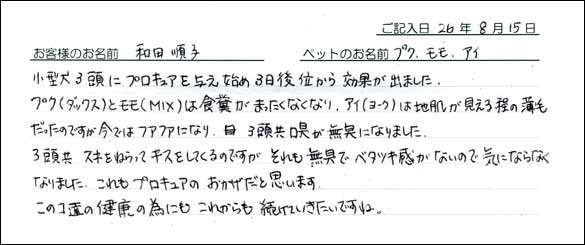 ご記入日 26年 8月 15日
お客様のお名前 和田 順子 ペットのお名前 プク、モモ、アイ
小型犬3頭にプロキュアを与え始め3日後位から効果が出ました。
プク(ダックス)とモモ(MIX)は食糞がまったくなくなり、アイ(ヨーク)は地肌が見える程の薄毛
だったのですが今ではファファになり、3頭共口臭が無臭になりました。
3頭共 スキをねらってキスをしてくるのですが それも無臭でベタツキ感がないので気にならなく
なりました。これもプロキュアのおかげだと思います。
このコ達の健康の為にも これからも 続けていきたいですね。